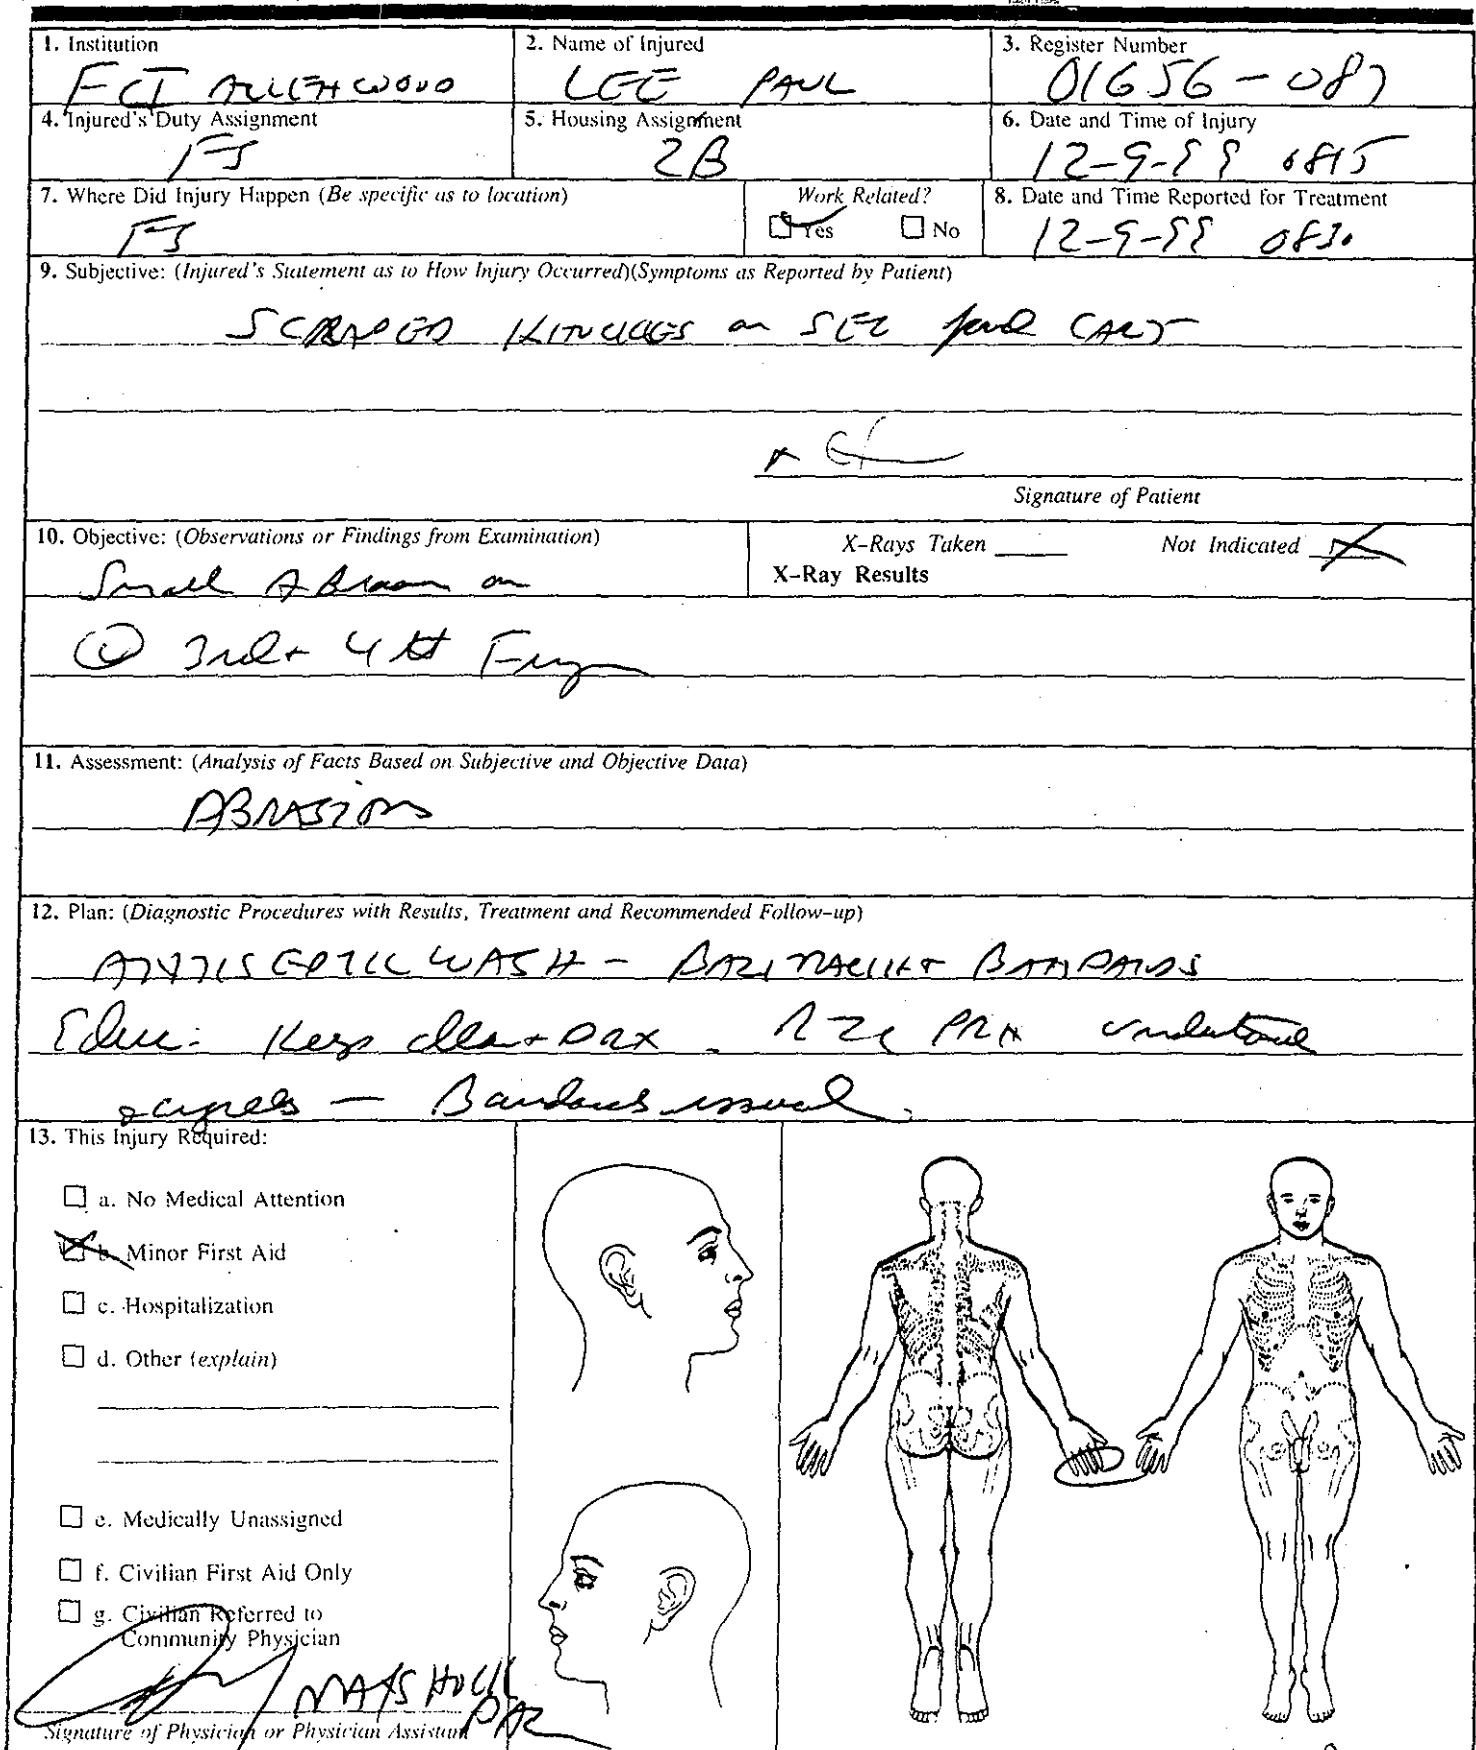 1. Institution
FCI ALLENWOOD
2. Name of Injured
LEE PAUL
3. Register Number
01656-087
4. Injured's Duty Assignment
FS
5. Housing Assignment
2B
6. Date and Time of Injury
12-9-99 0815
7. Where Did Injury Happen (Be specific as to location)
FS
Work Related?
Yes No
8. Date and Time Reported for Treatment
12-9-99 0830
9. Subjective: (Injured's Statement as to How Injury Occurred)(Symptoms as Reported by Patient)
SCRAPED KNUCKLES on food CART
Signature of Patient
10. Objective: (Observations or Findings from Examination)
X-Rays Taken Not Indicated
X-Ray Results
Small Abrasion on
3rd + 4th Finger
11. Assessment: (Analysis of Facts Based on Subjective and Objective Data)
ABRASIONS
12. Plan: (Diagnostic Procedures with Results, Treatment and Recommended Follow-up)
ANTISEPTIC WASH - BACITRACIN + BANDAIDS
Educ: Keep clean + DRY. PRN understand
agrees - Bandaids issued.
13. This Injury Required:
a. No Medical Attention
b. Minor First Aid
c. Hospitalization
d. Other (explain)
e. Medically Unassigned
f. Civilian First Aid Only
g. Civilian Referred to
Community Physician
Signature of Physician or Physician Assistant